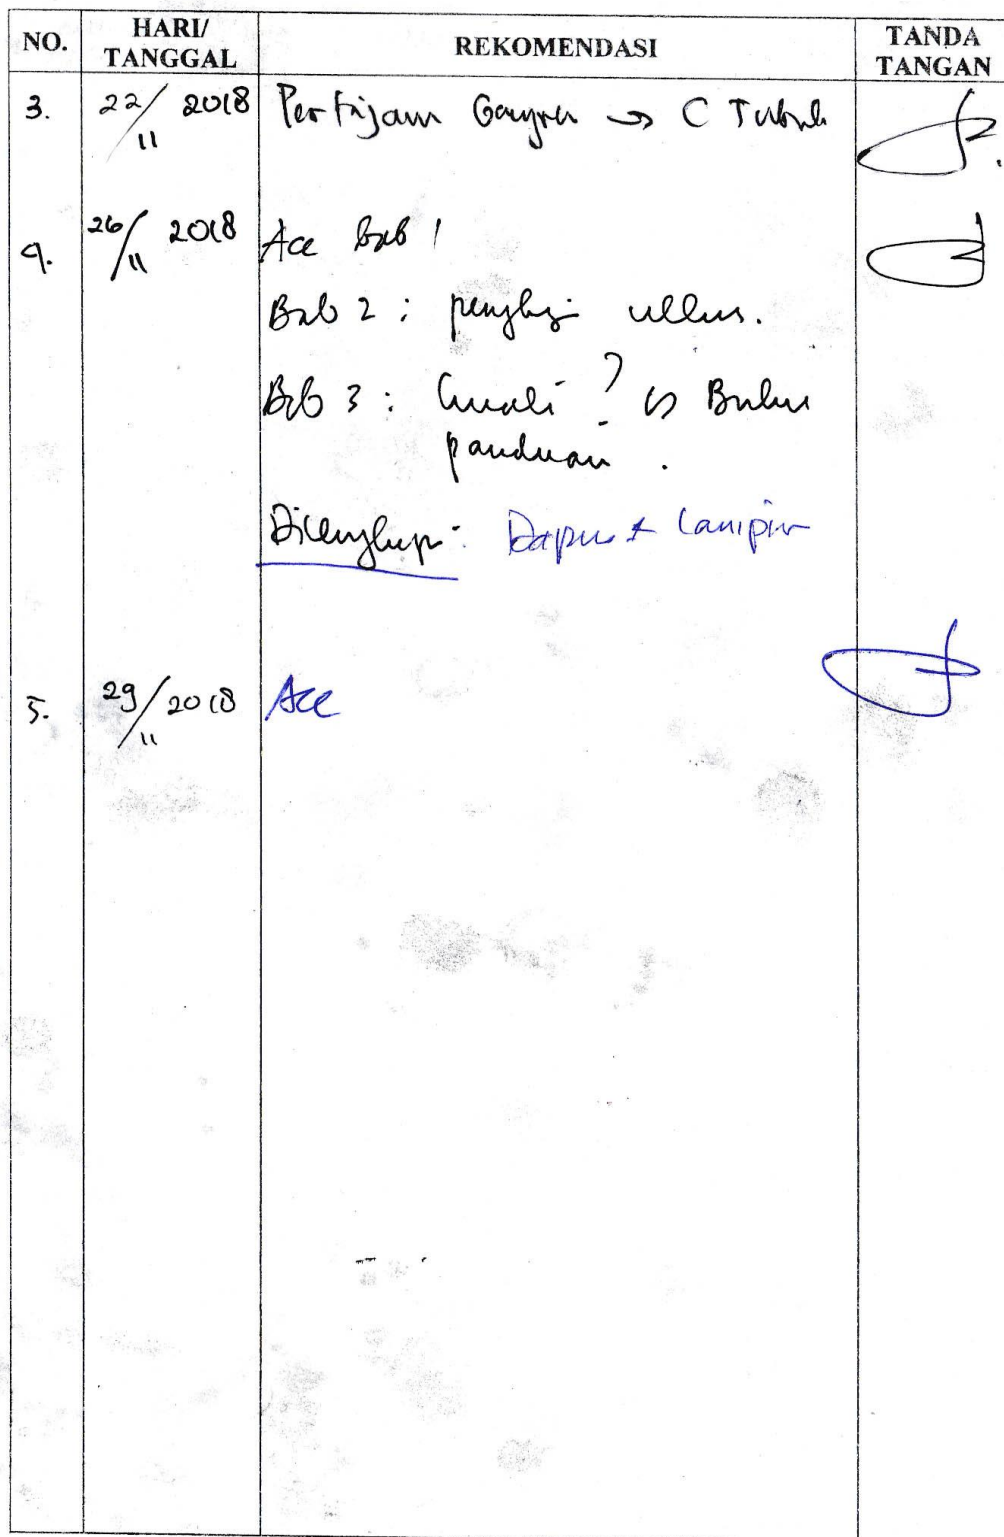 NO. HARI/ TANGGAL REKOMENDASI TANDA TANGAN
3. 22/11 2018 Pertajam → C
4. 26/11 2018 Acc Bab 1
Bab 2 :
Bab 3 : ? Buku
panduan .
Dilengkapi : Dapus + Lampir
5. 29/11 2018 Acc